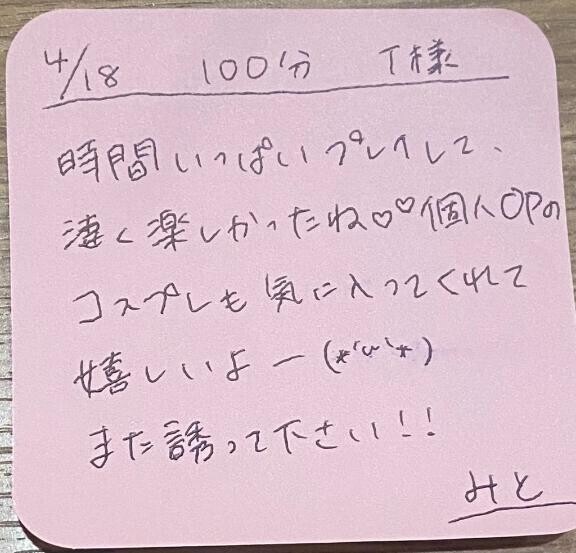 4/18 100分 T様
時間いっぱいプレイして、
凄く楽しかったね♡♡個人OPの
コスプレも気に入ってくれて
嬉しいよー(*'ω'*)
また誘って下さい!!
みと